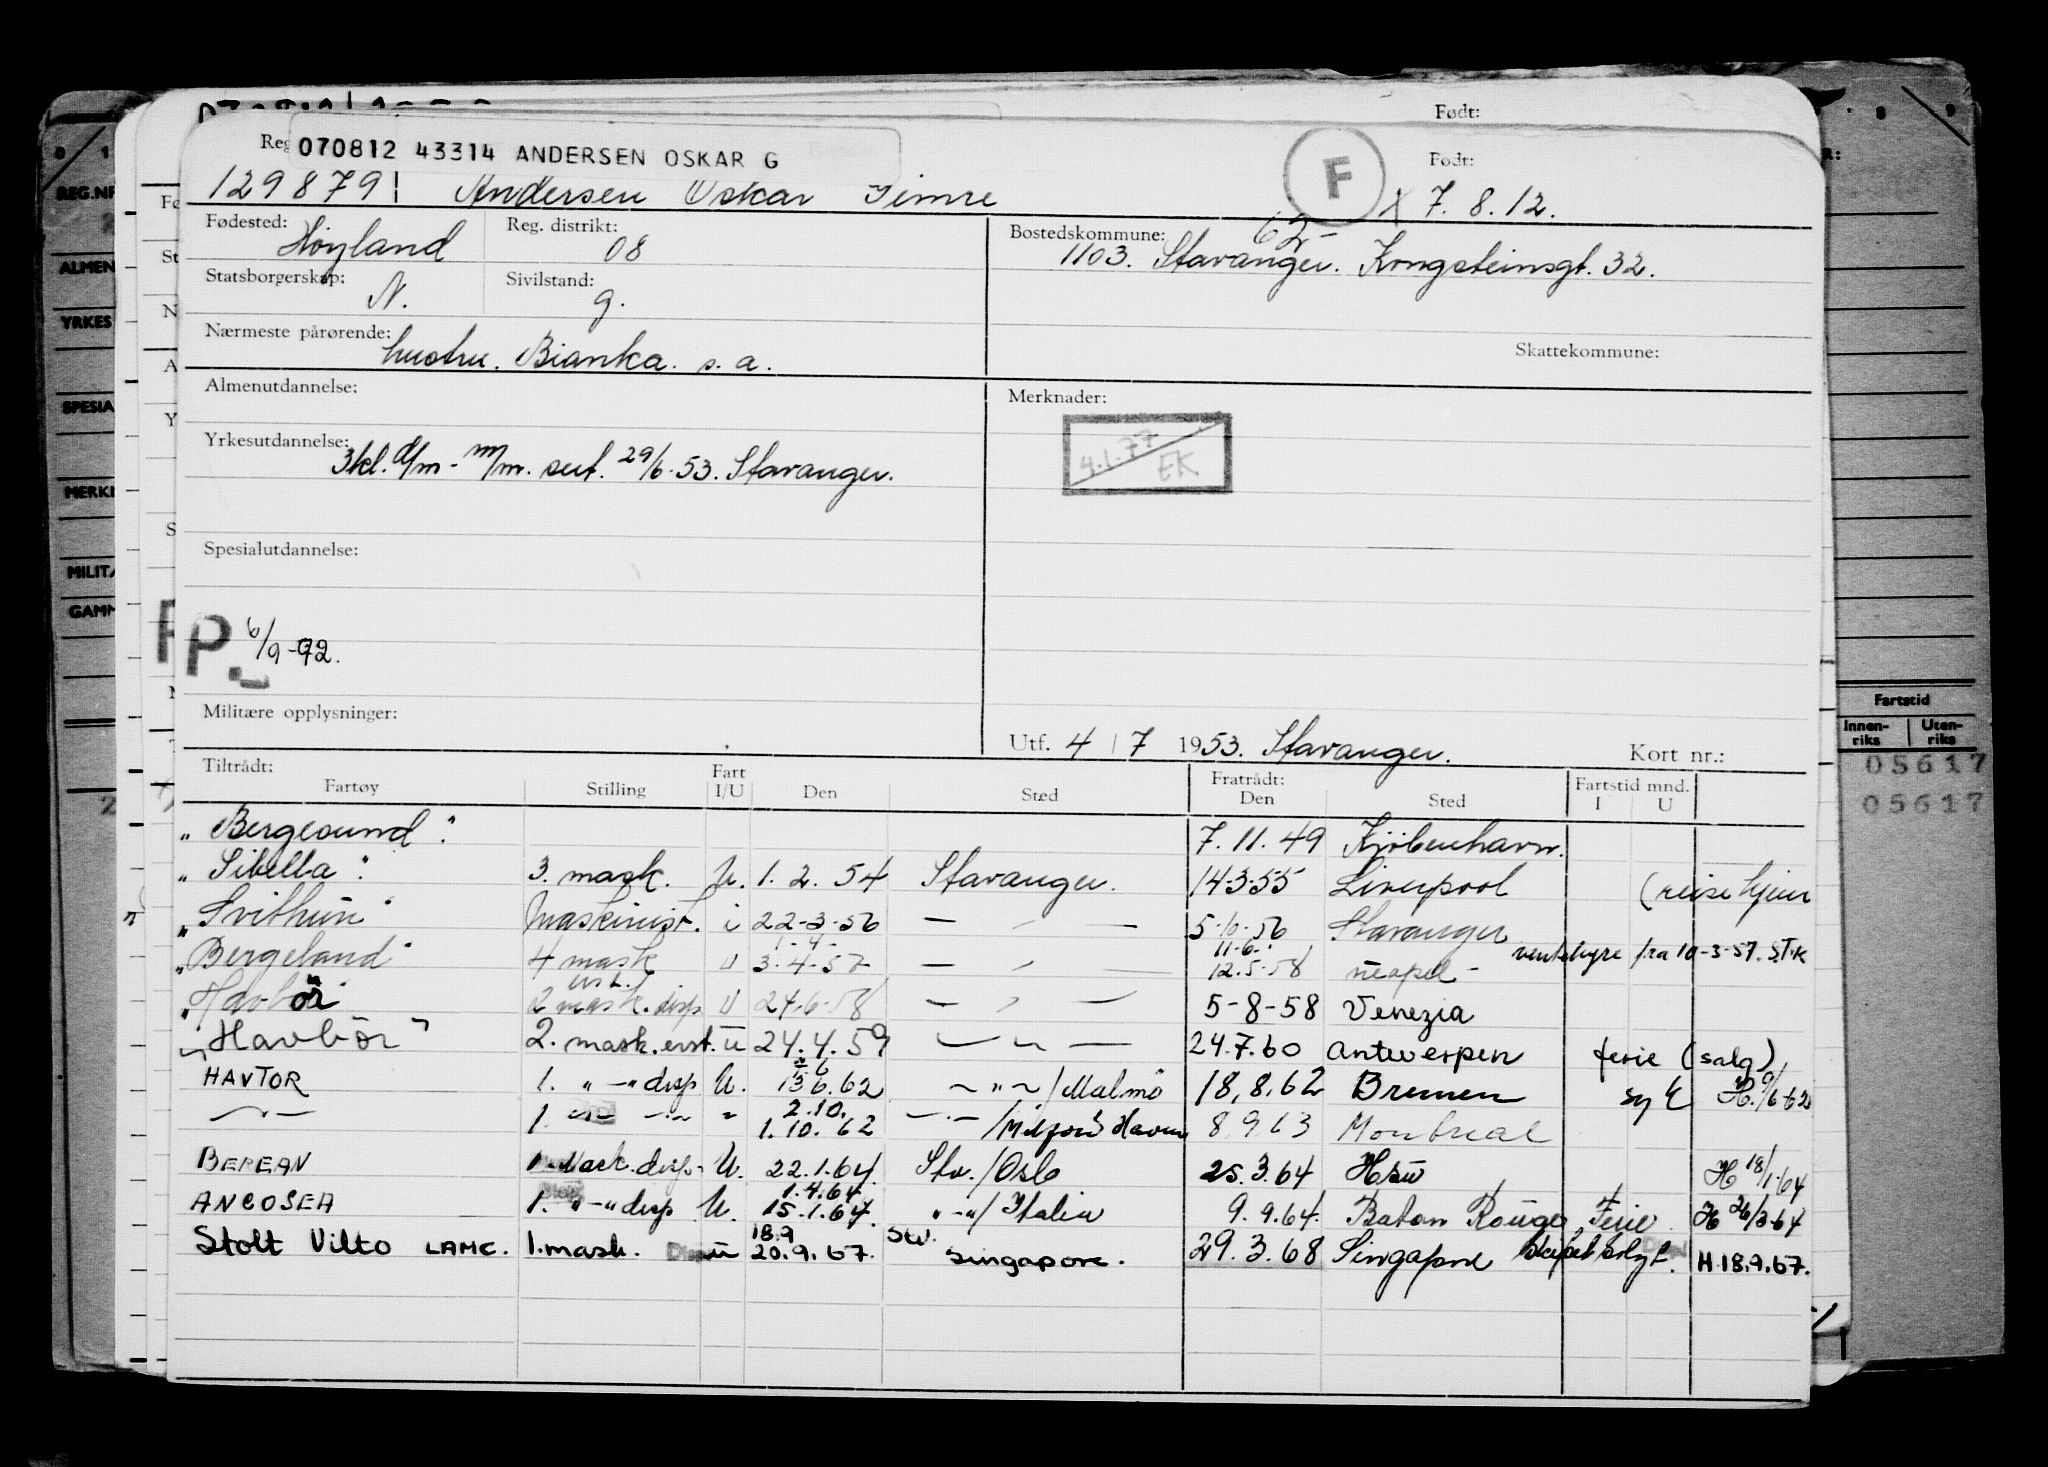 Født:
Reg 070812 43314 ANDERSEN OSKAR G
F
Født:
129879 Andersen Oskar X 7.8.12.
Fødested: Høyland Reg. distrikt: 08 Bostedskommune: 62
1103. Stavanger. Kongsteinsgt. 32.
Statsborgerskap: N. Sivilstand: g.
Nærmeste pårørende: hustru. Bianka. s.a. Skattekommune:
Almenutdannelse: Merknader:
4.1.77 EK
Yrkesutdannelse: 3kl. d/m - m/m. sert. 29/6-53. Stavanger.
Spesialutdannelse:
P. 6/9-72.
Militære opplysninger:
Utf. 4/7 1953. Stavanger. Kort nr.:
Tiltrådt: Fratrådt:
Fartøy Stilling Fart I/U Den Sted Den Sted Fartstid mnd. I U
"Bergesund". 7.11.49 Kjøbenhavn.
"Sibella". 3. mask. U. 1.2.54 Stavanger. 14-3-55 Liverpool (reise hjem
"Svithun" Maskinist. i 22-3-56 — " — 5-10-56 Stavanger
"Bergeland" 4 mask U 1-4- 3-4-57 — " — 11-6- 12.5.58 neapel - ventehyre fra 10-3-57. S.T.K
"Havbör" 2 mask. disp U 24-6-58 — " — 5-8-58 Venezia
"Havbör" 2. mask. erst. u 24.4.59 — " — 24.7.60 Antwerpen ferie (salg)
HAVTOR 1. " — " disp U. 13 6.62 — " — /Malmö 18.8.62 Bremen syk H. 9/6-62
— " — 1. — " — " 2.10. 1.10.62 — " — /Milford Haven 8.9.63 Montreal
BEREAN 1. Mask. disp. U. 22.1.64 Stv./Oslo 25.3.64 H 18/1-64
ANCOSEA 1. " — " disp U. 1.4.64 15.1.64. " — " /Italia 9.9.64. Baton Rouge Ferie H 26/3-64
Stolt Vilto LAMC. 1. mask. u 18.9 20.9.67. Stv. Singapore. 29.3.68 Singapore H.18.9.67.
REG.NR
ALMEN
YRKES
SPESIA
MERK
MILIT
GAMM
Fartstid
Innen-riks Uten-riks
05617
05617